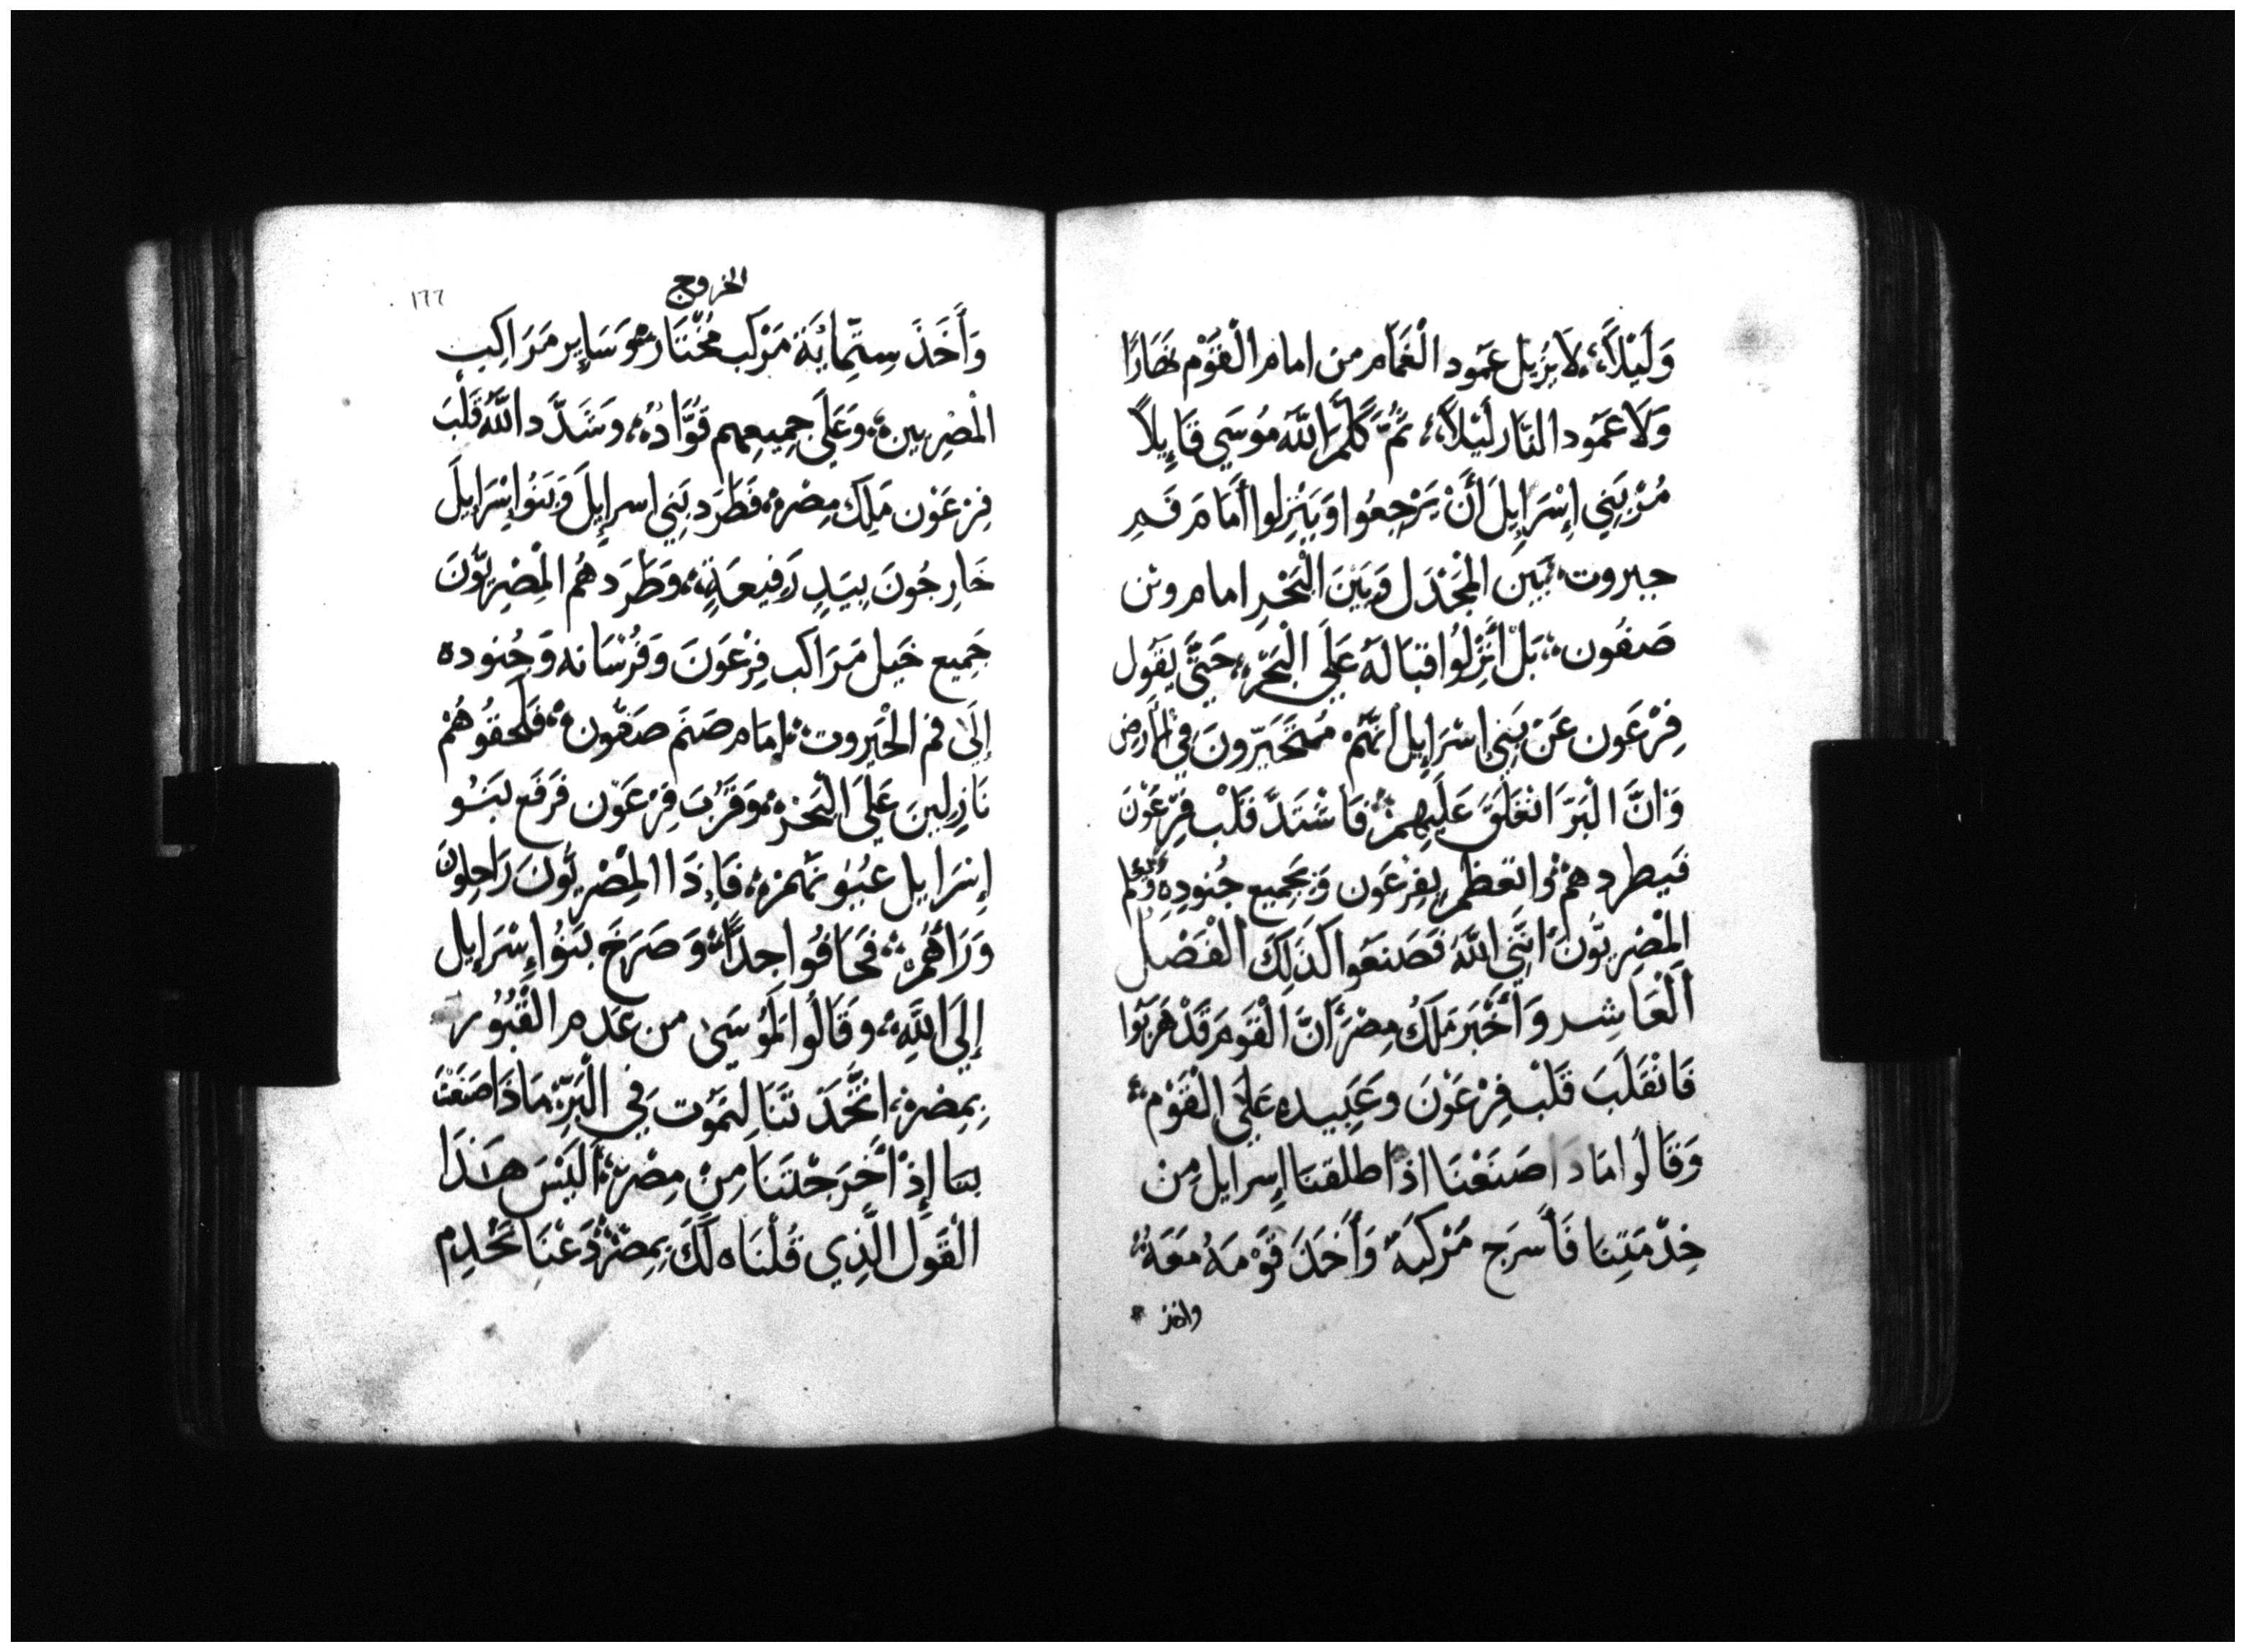 وَلَيْلاً، لَا يَزِيل عَمود الْغَمَام من امام الْقَوْم نَهَارًا
وَلَا عَمَود النَّار لَيْلاً، ثُمَّ كَلَّمَ اللَّه مُوسَي قَايِلاً
مُرْ بَنِي إِسْرَايِلَ أَنْ يَرْجِعُوا وَيَنْزِلوا أَمَامَ فَمِ
حيروت، بَيْن الْمَجْدَل وَبَيْنَ الْبَحْرِ امام وثن
صَفُون، بَلْ أَنْزِلُوا قبَالَهُ عَلَي الْبَحْر، حَتَّي يَقُول
فِرْعَون عَنْ بَنِي اسْرَايِل انَّهُمْ مُتَحَيِّرونَ فِي الْارض
وَانَّ الْبَرَّ انْغَلَقَ عَلَيهِمْ فَاشْتَدَّ قَلْب فِرْعَوْنَ
فَيطردهمْ واتعَظم بِفِرْعَون وَبجَمِيع جُنودِهِ وَيَعْلم
الْمِصْرِيُّونَ انَّنِي اللَّهُ فَصَنَعوا كَذَلِكَ الْفَصْل
الْعَاشِر وَأَخْبَر مَلَكُ مِصْرَ أَنَّ الْقَومَ قَدْ هَرَبُوا
فَانْقَلَبَ قَلْب فِرْعَوْنَ وَعَبِيده عَلَي الْقَوْم
وَقَالُوا مَاذَا صَنَعْنَا اذ اطلقنَا اسرايل مِن
خِدْمَتِنَا فَأَسرَج مَرْكَبَهُ وَأَخَذَ قَوْمَهُ مَعَهُ
واخذ
الخروج
١٦٦
وَأَخَذَ سِتّمِايُةَ مَرْكَب مُخْتَار، وَسَايِر مَرَاكِب
الْمصْرِيين، وَعَلَي جمِيعِهِم قُوَّادُهُ، وَشَدَّد اللَّهُ قَلْبَ
فِرْعَوْن مَلِك مِصْر، فَطَرَد بَنِي اسرايِلَ وَبَنُوا إِسْرَايِلَ
خَارِجُونَ بِيَدٍ رَفِيعَةٍ، وَطَرَدهُم الْمِصْرِيُّونَ
جَمِيع خَيل مَرَاكب فِرْعَونَ وَفُرْسَانه وَجُنوده
إِلَى فم الْحيروت، امَام صَنَم صَفُون، فَلَحقُوهُمْ
نَازِلِينَ عَلَى الْبَحْر، وَقَرُبَ فِرْعَوْن فَرَفَع بَنُو
إِسْرَايِل عُيُونَهُمْ، فَاذَا الْمِصْرِيُّونَ رَاحِلونَ
وَرَاهُمْ، فَخَافُوا جِدًّا، وَصَرَخَ بَنُوا إِسْرَايِل
إِلَي اللَّهِ، وَقَالُوا لِمُوسَى من عَدم الْقُبُور
بِمِصْر، اتَّخَذتَنَا لِنَمُوت فِي الْبَرّ، مَاذَا صَنَعْتَ
بنا إِذْ أَخْرَجْتَنَا مِنْ مِصْر، أَلَيْسَ هَذَا
الْقَوْل الَّذِي قُلْنَاه لَكَ بِمِصْر، دَعْنَا نَخْدِم